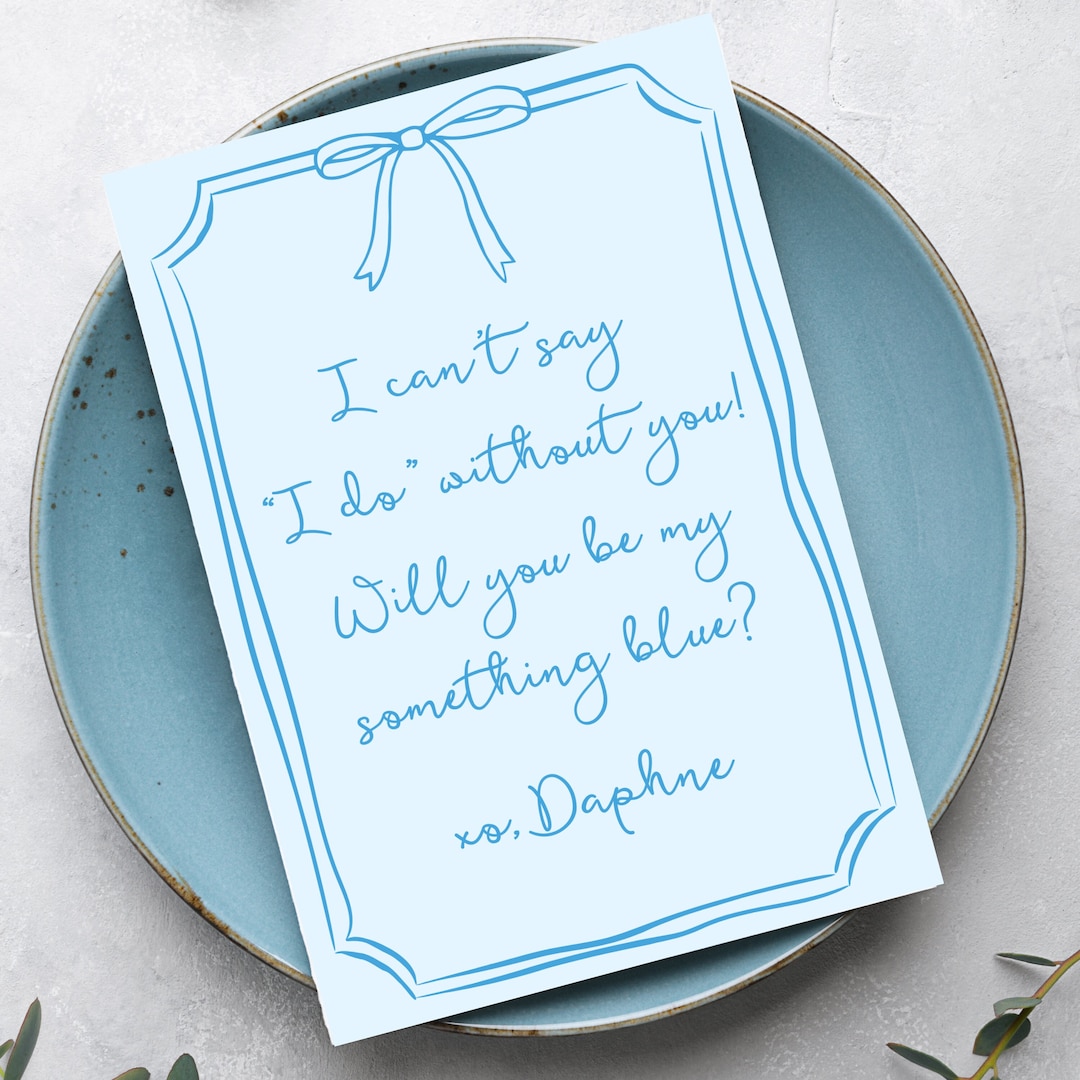 I can't say
“I do” without you!
Will you be my
something blue?
xo, Daphne